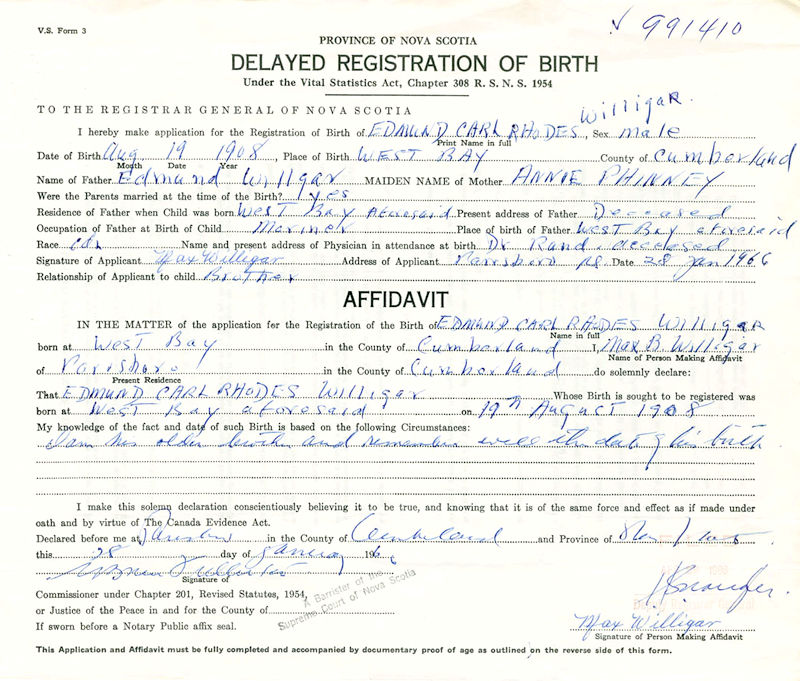 V.S. Form 3
√ 991410
PROVINCE OF NOVA SCOTIA
DELAYED REGISTRATION OF BIRTH
Under the Vital Statistics Act, Chapter 308 R. S. N. S. 1954
TO THE REGISTRAR GENERAL OF NOVA SCOTIA
Willigar
I hereby make application for the Registration of Birth of EDMUND CARL RHODES, Sex male
Print Name in full
Date of Birth Aug 19 1908, Place of Birth WEST BAY County of Cumberland
Month Date Year
Name of Father Edmund Willgar MAIDEN NAME of Mother ANNIE PHINNEY
Were the Parents married at the time of the Birth? Yes
Residence of Father when Child was born West Bay aforesaid Present address of Father Deceased
Occupation of Father at Birth of Child Mariner Place of birth of Father West Bay aforesaid
Race Name and present address of Physician in attendance at birth Dr Rand, deceased
Signature of Applicant Max Willigar Address of Applicant Parrsboro NS Date 28 Jan 1966
Relationship of Applicant to child Brother
AFFIDAVIT
IN THE MATTER of the application for the Registration of the Birth of EDMUND CARL RHODES WILLIGAR
Name in full
born at West Bay in the County of Cumberland I, Max B. Willigar
Name of Person Making Affidavit
of Parrsboro in the County of Cumberland do solemnly declare:
Present Residence
That EDMUND CARL RHODES Willigar Whose Birth is sought to be registered was
born at West Bay aforesaid on 19th August 1908
My knowledge of the fact and date of such Birth is based on the following Circumstances:
I am his older brother and remember well the date of his birth
I make this solemn declaration conscientiously believing it to be true, and knowing that it is of the same force and effect as if made under
oath and by virtue of The Canada Evidence Act.
Declared before me at Parrsboro in the County of Cumberland and Province of Nova Scotia
this 28 day of January 1966
Signature of
Commissioner under Chapter 201, Revised Statutes, 1954,
or Justice of the Peace in and for the County of
A Barrister of the
Supreme Court of Nova Scotia
If sworn before a Notary Public affix seal.
Max Willigar
Signature of Person Making Affidavit
This Application and Affidavit must be fully completed and accompanied by documentary proof of age as outlined on the reverse side of this form.